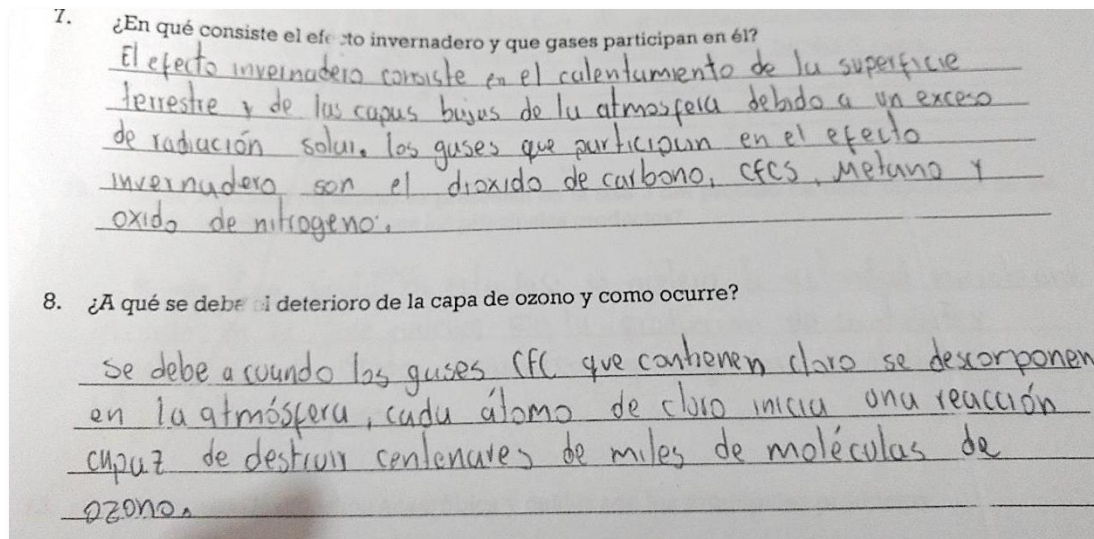 7. ¿En qué consiste el efecto invernadero y que gases participan en él?
El efecto invernadero consiste en el calentamiento de la superficie
terrestre y de las capas bajas de la atmosfera debido a un exceso
de radiación solar. los gases que participan en el efecto
invernadero son el dioxido de carbono, CFCS, Metano y
oxido de nitrogeno.
8. ¿A qué se debe el deterioro de la capa de ozono y como ocurre?
se debe a cuando los gases CFC que contienen cloro se descomponen
en la atmósfera, cada átomo de cloro inicia una reacción
capaz de destruir centenares de miles de moléculas de
ozono.